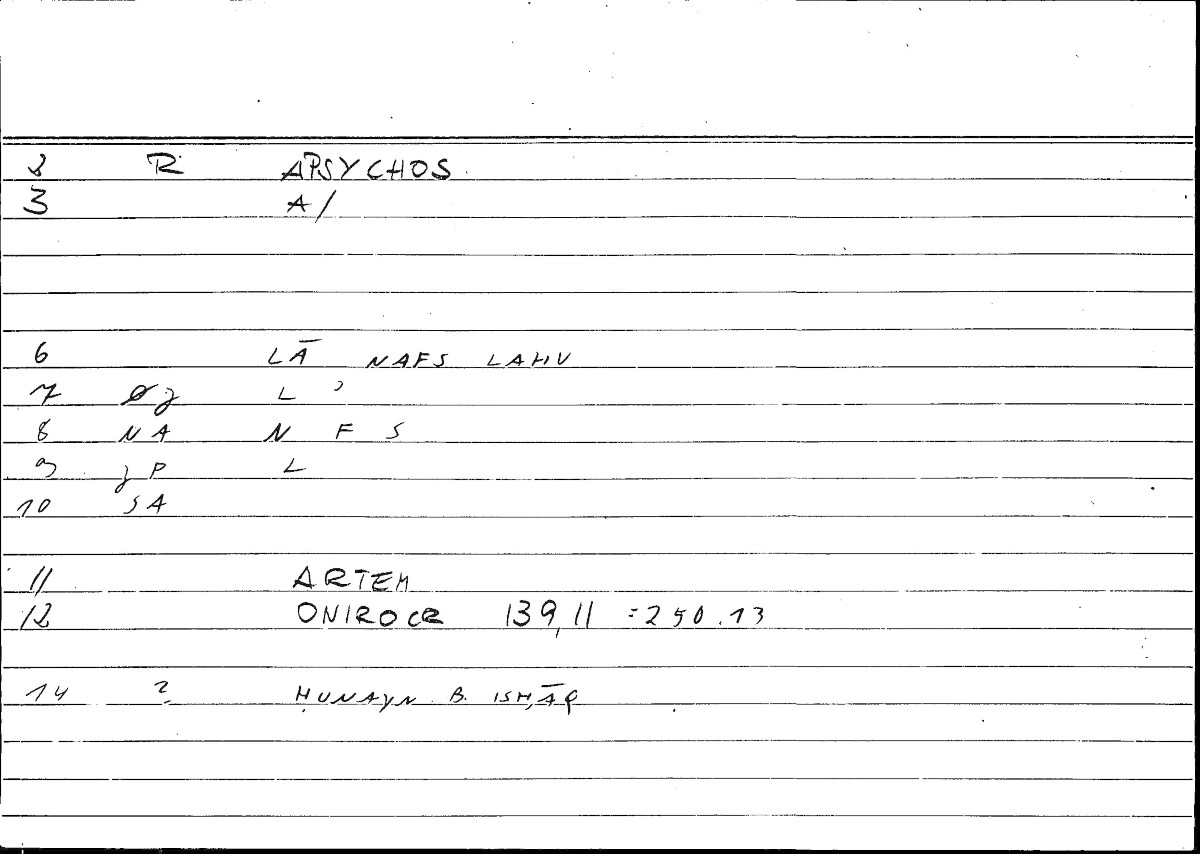 2 R APSYCHOS
3 A/
6 LĀ NAFS LAHU
7 Øj L ʾ
8 NA N F S
9 jP L
10 SA
11 ARTEM
12 ONIROCR 139,11 =250.13
14 2 ḤUNAYN B. ISḤĀQ